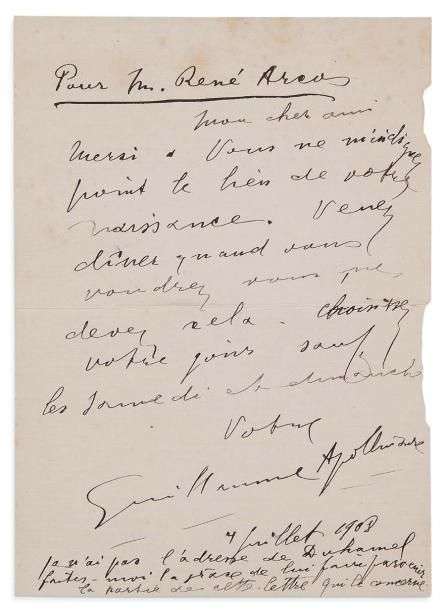 Pour M. René Arcos
Mon cher ami
Merci. Vous ne m'indiquez
point le lieu de votre
naissance. Venez
dîner quand vous
voudrez vous me
devez cela. Choisissez
votre jour sauf
les samedi et dimanche
Votre
Guillaume Apollinaire
4 juillet 1908
Je n'ai pas l'adresse de Duhamel
faites-moi la grâce de lui faire parvenir
la partie de cette lettre qui le concerne